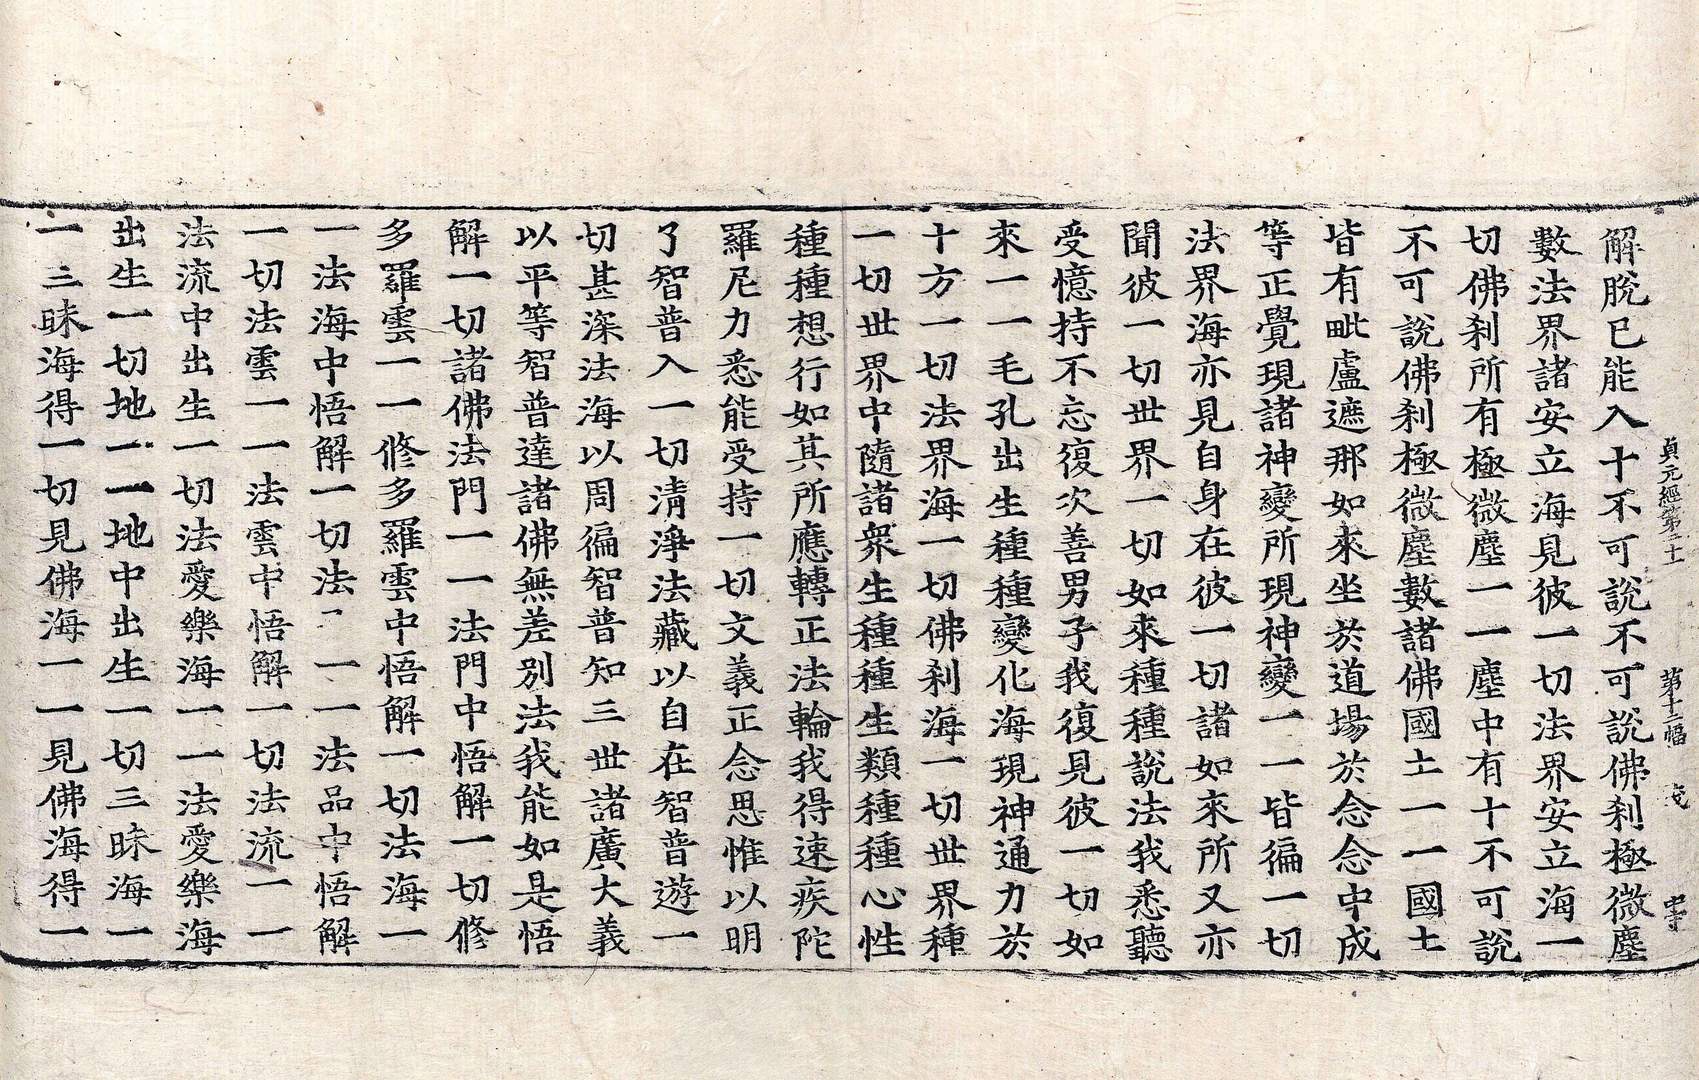 貞元經第二十 第十二幅 中寺
解脫已能入十不可說不可說佛刹極微塵
數法界諸安立海見彼一切法界安立海一
切佛刹所有極微塵一一塵中有十不可說
不可說佛刹極微塵數諸佛國土一一國土
皆有毗盧遮那如來坐於道場於念念中成
等正覺現諸神變所現神變一一皆徧一切
法界海亦見自身在彼一切諸如來所又亦
聞彼一切世界一切如來種種說法我悉聽
受憶持不忘復次善男子我復見彼一切如
來一一毛孔出生種種變化海現神通力於
十方一切法界海一切佛刹海一切世界種
一切世界中隨諸衆生種種生類種種心性
種種想行如其所應轉正法輪我得速疾陀
羅尼力悉能受持一切文義正念思惟以明
了智普入一切清淨法藏以自在智普遊一
切甚深法海以周徧智普知三世諸廣大義
以平等智普達諸佛無差別法我能如是悟
解一切諸佛法門一一法門中悟解一切修
多羅雲一一修多羅雲中悟解一切法海一
一法海中悟解一切法 一一法品中悟解
一切法雲一一法雲中悟解一切法流一一
法流中出生一切法愛樂海一一法愛樂海
出生一切地一一地中出生一切三昧海一
一三昧海得一切見佛海一一見佛海得一